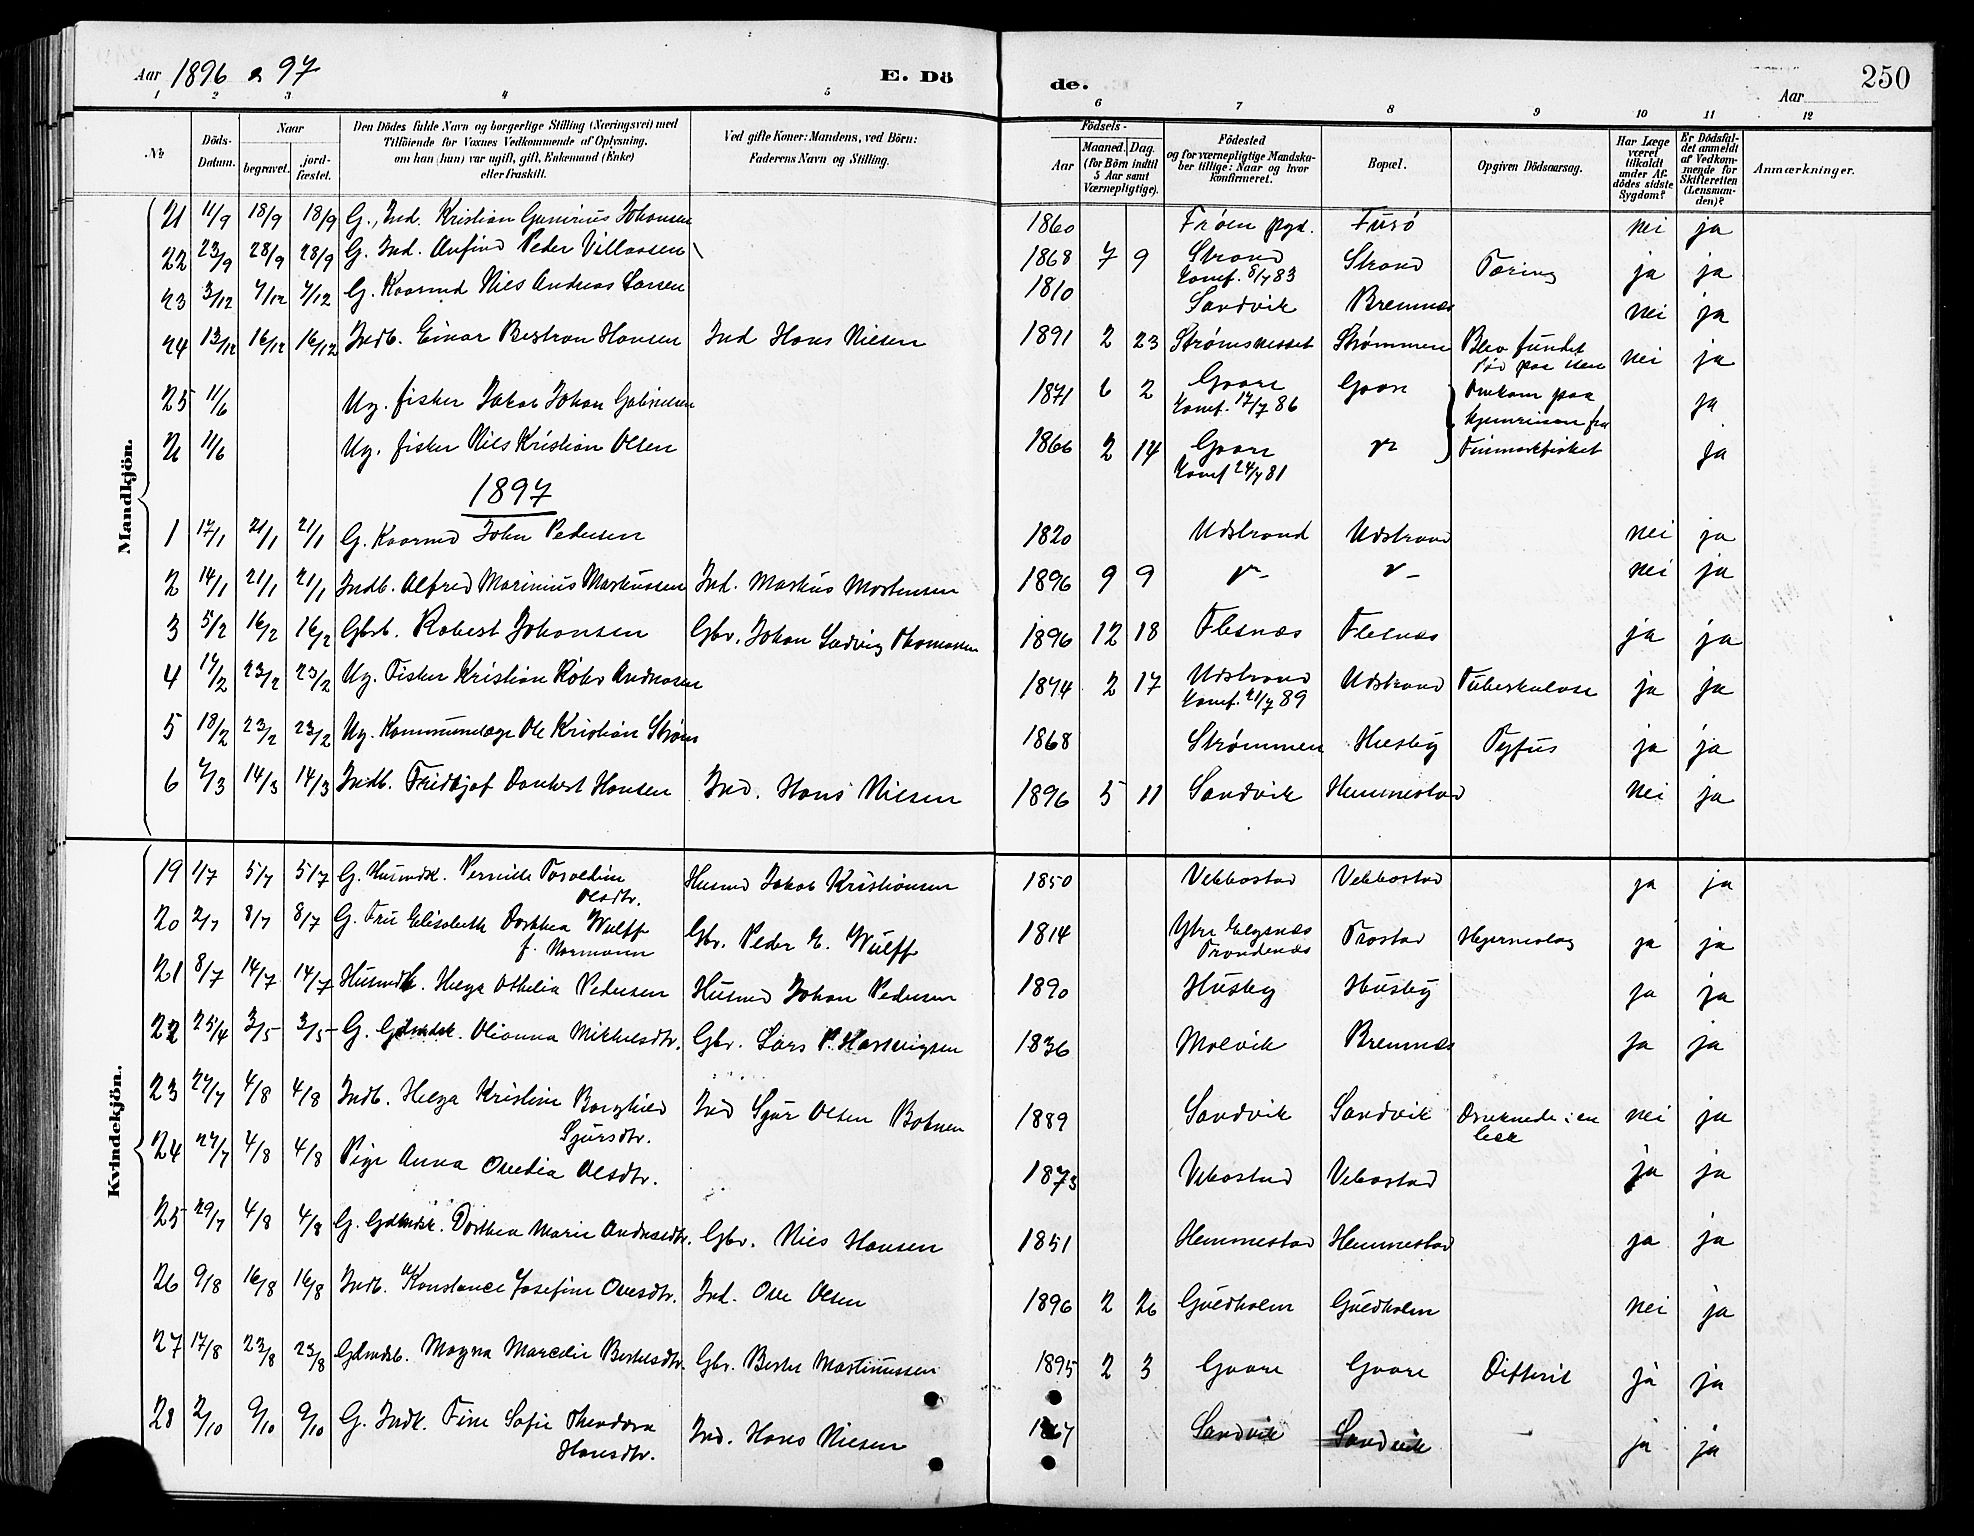 Aar 1896 & 97 E. Dö de. Aar 250
1 2 3 4 5 6 7 8 9 10 11 12
№ Döds-Datum. Naar begravet. jord-fæstet. Den Dödes fulde Navn og borgerlige Stilling (Næringsvei) med Tilföiende for Voxnes Vedkommende af Oplysning, om han (hun) var ugift, gift, Enkemand (Enke) eller fraskilt. Ved gifte Koner: Mandens, ved Börn: Faderens Navn og Stilling. Födsels- Aar Maaned. Dag. (for Börn indtil 5 Aar samt Værnepligtige). Födested og for værnepligtige Mandskaber tillige: Naar og hvor konfirmeret. Bopæl. Opgiven Dödsaarsag. Har Læge været tilkaldt under Afdödes sidste Sygdom? Er Dödsfaldet anmeldt af Vedkommende for Skifteretten (Lensmanden)? Anmærkninger.
Mandkjön.
21 11/9 18/9 18/9 G., Ind. Kristian Gunerius Johansen 1860 Frøen pgd. Furö nei ja
22 23/9 28/9 28/9 G. Ind. Anfind Peder Villassen 1868 7 9 Strand Konf. 8/7 83 Strand Tæring ja ja
23 3/12 7/12 7/12 G. Kaarmd Nils Andreas Larsen 1810 Sandvik Bremnes nei ja
24 13/12 16/12 16/12 Indb. Einar Bertran Hansen Ind Hans Nilsen 1891 2 23 Strømsnesset Strømmen Blev fundet död paa isen nei ja
25 11/6 Ug. fisker Jakob Johan Gabrielsen 1871 6 2 Gaare Konf. 17/7 86 Gaare Omkom paa ja
Hjemreisen fra
26 11/6 Ug. fisker Nils Kristian Olsen 1866 2 14 Gaare Konf 24/7 81 Finmarkfisket ja
1897
1 17/1 21/1 21/1 G. Kaarmd John Pedersen 1820 Udstrand Udstrand nei ja
2 14/1 21/1 21/1 Indb. Alfred Marinius Markussen Ind. Markus Mortensen 1896 9 9 nei ja
3 5/2 16/2 16/2 Gbrb. Robert Johansen Gbr. Johan Ludvig Thomassen 1896 12 18 Flesnæs Flesnæs ja ja
4 17/2 23/2 23/2 Ug. Fisker Kristian Andreasen 1874 2 17 Udstrand Konf. 21/7 89 Udstrand Tuberkulose ja ja
5 18/2 23/2 23/2 Ug. Kommunelæge Ole Kristian Strøm 1868 Strømmen Husby Tyfus ja ja
6 7/3 14/3 14/3 Indb. Fridtjof Dankert Hansen Ind. Hans Nilsen 1896 5 11 Sandvik Hemmestad nei ja
Kvindekjön.
19 1/7 5/7 5/7 G. Husmdsk. Pernille Torvoldine Olsdtr. Husmd Jakob Kristiansen 1850 Vebbostad Vebbostad ja ja
20 2/7 8/7 8/7 G. Fru Elisabeth Dorthea Wulff f. Normann Gbr. Peder E. Wulff 1814 Ytre Elgsnæs Trondenæs Trastad Hjerneslag ja ja
21 8/7 14/7 14/7 Husmdb. Helga Othelia Pedersen Husmd Johan Pedersen 1890 Husby Husby ja ja
22 25/4 3/5 3/5 G. Gdmdsk. Olianna Mikkelsdtr. Gbr. Lars P. Henningsen 1836 Molvik Bremnes ja ja
23 27/7 4/8 4/8 Indb. Helga Kristine Borghild Sjursdtr. Ind Sjur Olsen Botnen 1889 Sandvik Sandvik Druknede i en bæk nei ja
24 27/7 4/8 4/8 Pige Anna Ovedia Olsdtr. 1873 Vebostad Vebostad ja ja
25 29/7 4/8 4/8 G. Gdmdsk. Dorthea Marie Andreasdtr. Gbr. Nils Hansen 1851 Hemmestad Hemmestad ja ja
26 9/8 16/8 16/8 Indb. Konstance Josefine Ovesdtr. Ind. Ove Olsen 1896 2 26 Guldholm Guldholm nei ja
27 17/8 23/8 23/8 Gdmdsb. Magna Marcelie Bertelsdtr. Gbr. Bertel Martinussen 1895 2 3 Gaare Gaare Difterit ja ja
28 2/10 9/10 9/10 G. Indk. Fine Sofie Theodora Hansdtr. Ind. Hans Nilsen Sandvik Sandvik ja ja